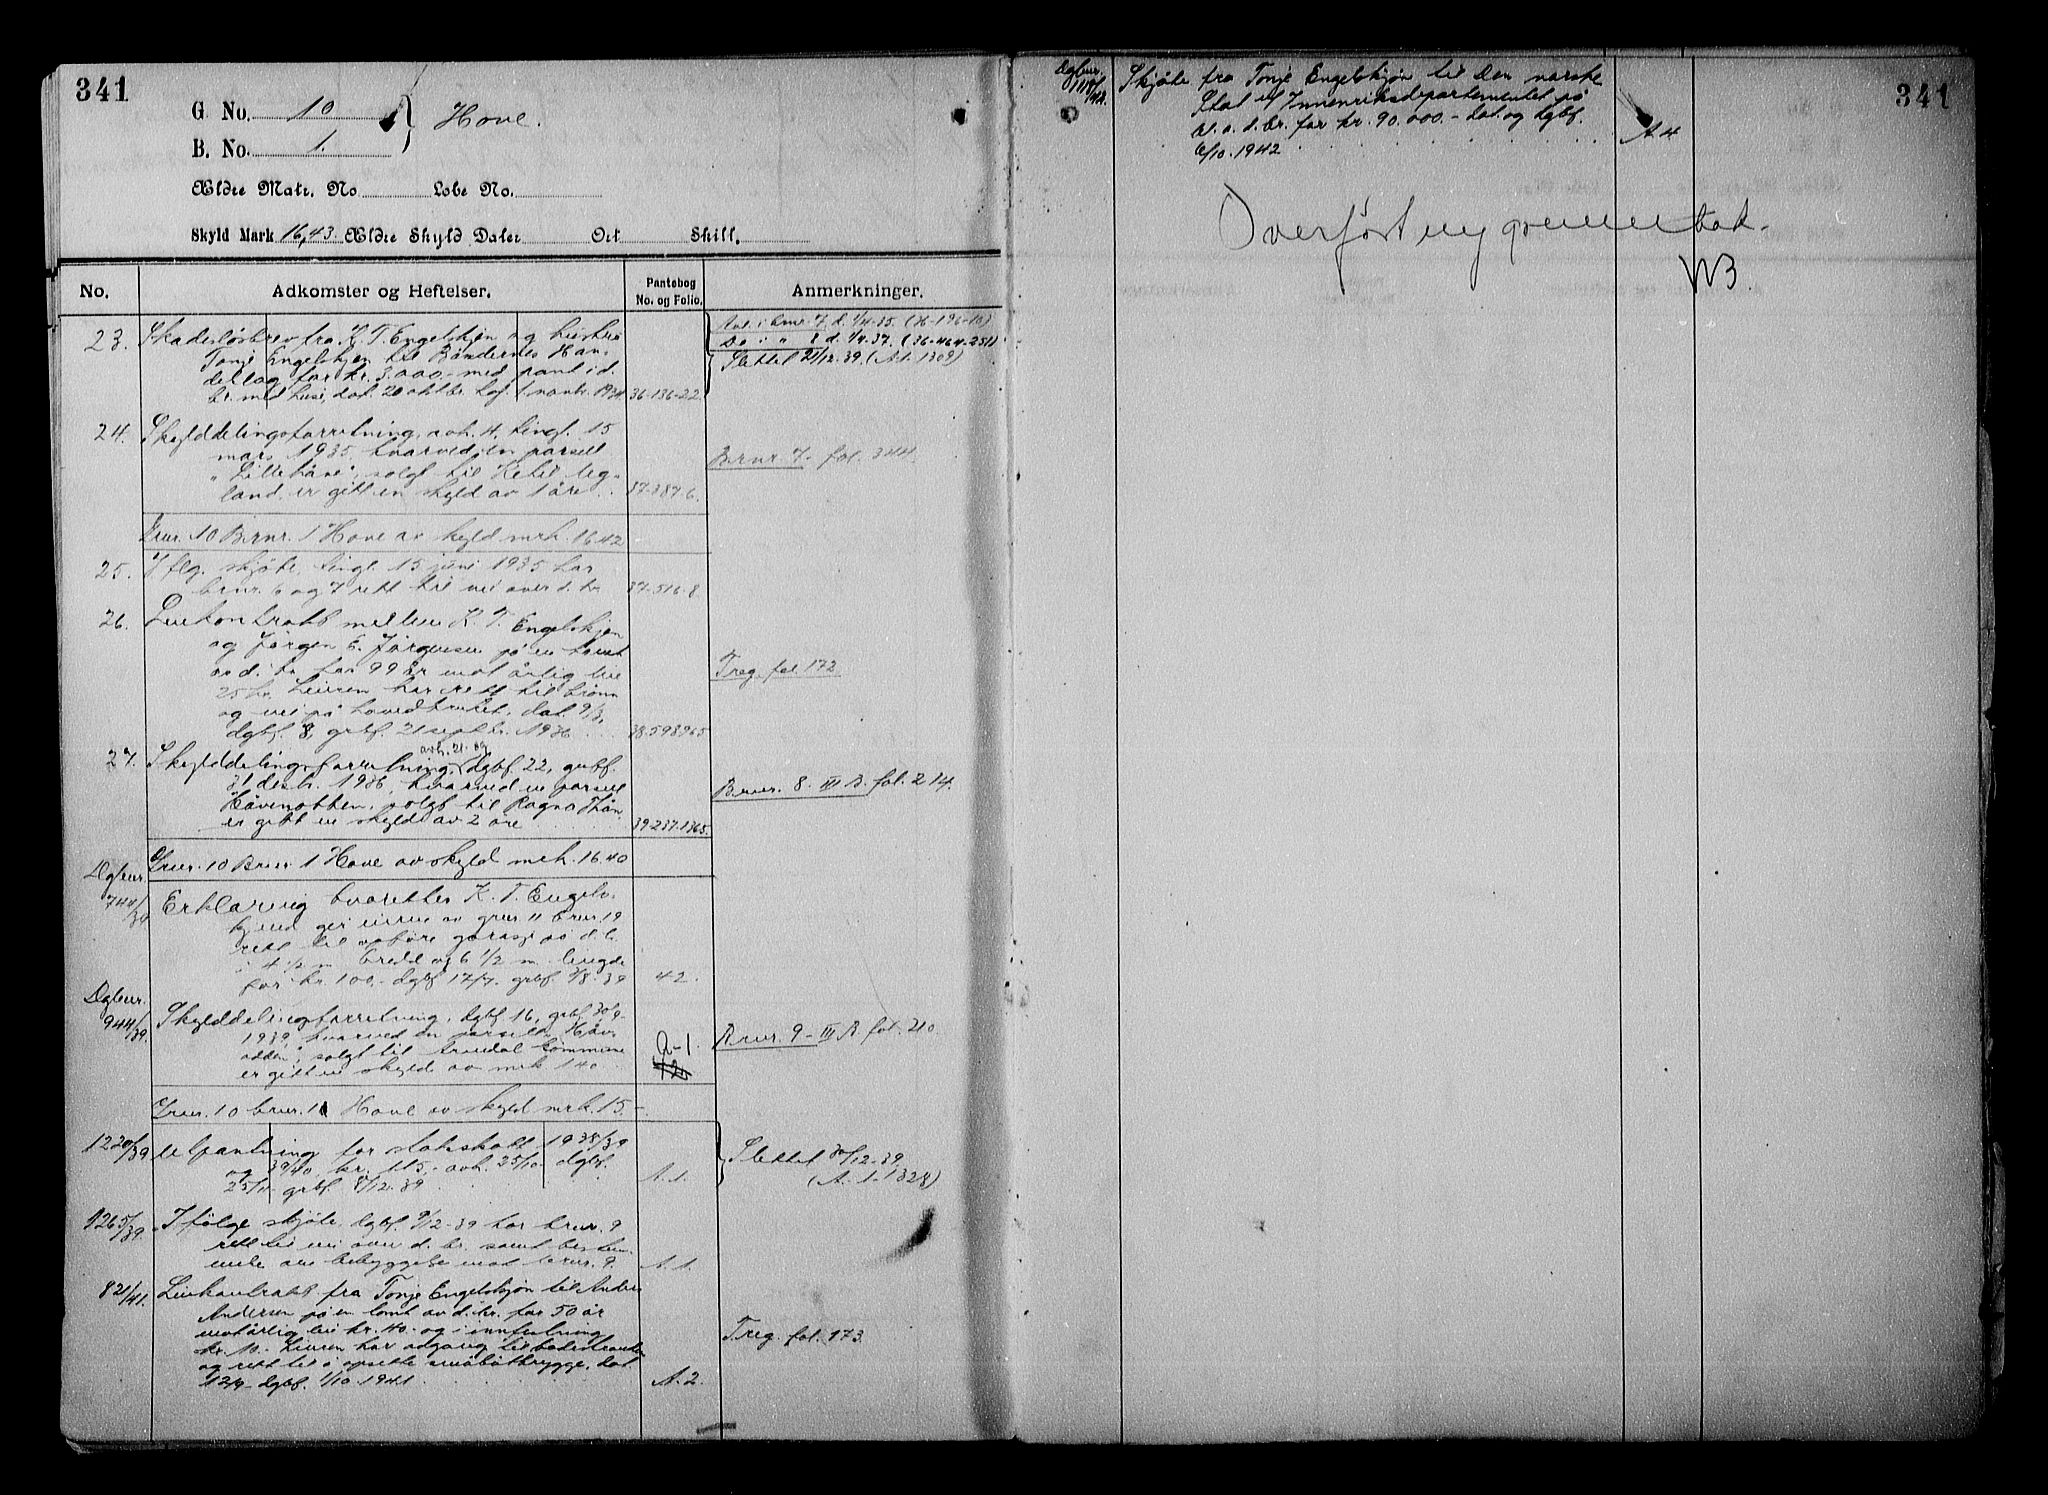 341
G No. 10 } Hove.
B. No. 1.
Ældre Matr. No. Løbe No.
Skyld Mark 16,43. Ældre Skyld Daler Ort Skill.
No. Adkomster og Heftelser. Pantebog No. og Folio. Anmerkninger.
23. Skadesløsbrev fra K. T. Engelskjøn og hustru
Tonje Engelskjøn til Bøndernes Han-
dellag for kr. 3.000.- med pant i d.
br. med husi, dat. 20 oktbr. tgl. 1. novbr. 1934 36-136-22
Avl. i brnr. 7 d. 1/4-35. (36-196-10)
Do i " 8 d. 1/4-37. (36-464-251)
Slettet 21/12.39. (A.1. 1309)
24. Skylddelingsforretning, avh. 4, tingl. 15
mars 1935, hvorved en parsell
"Lillehåve", solgt til Ketil
land er gitt en skyld av 1 øre. 37-387-6.
Brnr. 7- fol. 344.
Gnr. 10 Brnr. 1 Hove av skyld mrk. 16.42
25. Iflg. skjøte, tingl. 15 juni 1935 har
brnr. 6 og 7 rett til vei over d. br. 37-516-8
26. Leiekontrakt mellem K. T. Engelskjøn
og Jørgen E. Jørgensen på en tomt
av d. br. for 99 år mot årlig leie
25 kr. Leieren har rett til brønn
og vei på hovedbruket, dat. 9/3,
dgbf. 8, grbf. 21 septbr. 1936 38.598.965
Treg. fol 172.
27. Skylddelingsforretning, avh. 21. og dgbf. 22, grbf.
31 desbr. 1936, hvorved en parsell
Håvenatten, solgt til Ragna
er gitt en skyld av 2 øre 39-237-1365.
Brnr. 8. III B. fol. 214.
Gnr. 10 Brnr 1 Hove av skyld mrk. 16.40
Dgbnr. 744/39 Erklæring hvoretter K. T. Engels-
kjøn gir eieren av gnr 11 brnr. 19
rett til opføre garasje på d. br.
i 4 1/2 m bredd og 6 1/2 m. lengde
for kr. 100.- dgbf 17/7. grbf. 3/8-39 42.
Dgbnr. 944/39. Skylddelingsforretning, dgbf 16, grbf. 30/9-
1939, hvorved en parsell Håv-
odden, solgt til Arendal kommune
er gitt en skyld av mrk 1.40 A-1.
Brnr. 9 - III B fol. 210.
Gnr. 10 brnr. 1 Hove av skyld mrk. 15.-
1220/39. Utpantning for statsskatt 1938/39
og 39/40 kr. 115.- avh. 25/10- dgbf.
25/11- grbf. 8/12.39 A.1.
Slettet 30/12-39,
(A. 1. 1328)
1265/39. Ifølge skjøte, dgbf. 9/12-39 har brnr. 9
rett til vei over d. br. samt bestem-
melse om bebyggelse mot brnr. 9. A.1.
821/41. Leiekontrakt fra Tonje Engelskjøn til Anders
Andersen på en tomt av d. br. for 50 år
mot årlig leie kr. 40.- og i innfestning
kr. 10.- Leieren har adgang til badestranden
og rett til å opsette småbåtbrygge, dat.
12/9- dgbf. 1/10 1941 A.2.
Treg. fol. 173.
Dgbnr. Skjøte fra Tonje Engelskjøn til Den norske
Stat v/ Innenriksdepartementet på
bl. a. d. br. for kr. 90.000.- dat. og dgbf.
6/10.1942 A. 4
341
Overført ny grunnbok.